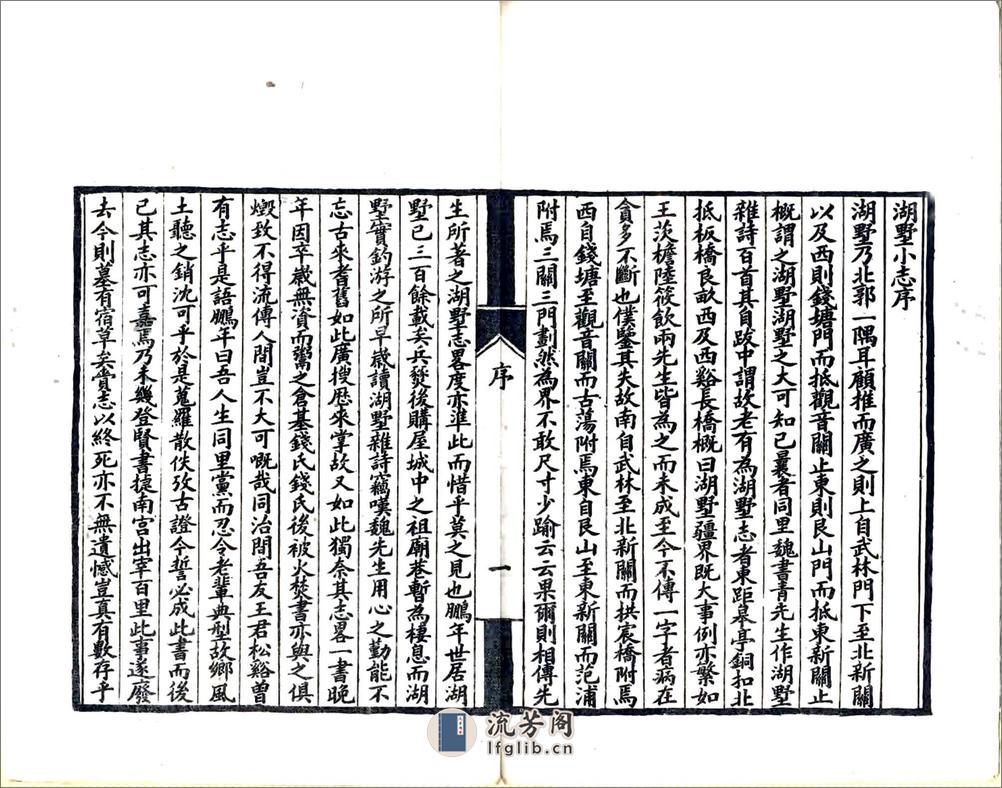 湖墅小志序
湖墅乃北郭一隅耳顧推而廣之則上自武林門下至北新關
以及西則錢塘門而抵觀音關止東則艮山門而抵東新關止
概謂之湖墅湖墅之大可知已曩者同里魏書青先生作湖墅
雜詩百首其自跋中謂故老有為湖墅志者東距皋亭銅扣北
抵板橋良畝西及西谿長橋概曰湖墅疆界既大事例亦繁如
王茨檐陸筱飲兩先生皆為之而未成至今不傳一字者病在
貪多不斷也僕鑒其失故南自武林至北新關而拱宸橋附焉
西自錢塘至觀音關而古蕩附焉東自艮山至東新關而范浦
附焉三關三門劃然為界不敢尺寸少踰云云果爾則相傳先
序
一
生所著之湖墅志畧度亦準此而惜乎莫之見也鵬年世居湖
墅已三百餘載矣兵燹後購屋城中之祖廟巷暫為棲息而湖
墅實釣游之所早歲讀湖墅雜詩竊嘆魏先生用心之勤能不
忘古來耆舊如此廣搜歷來掌故又如此獨奈其志畧一書晚
年因卒歲無資而鬻之倉基錢氏錢氏後被火焚書亦與之俱
燬致不得流傳人間豈不大可嘅哉同治間吾友王君松谿曾
有志乎是語鵬年曰吾人生同里黨而忍令老輩典型故鄉風
土聽之銷沈可乎於是蒐羅散佚攷古證今誓必成此書而後
已其志亦可嘉焉乃未幾登賢書捷南宮出宰百里此事遂廢
去今則墓有宿草矣賫志以終死亦不無遺憾豈真有數存乎
流芳阁
lfglib.cn